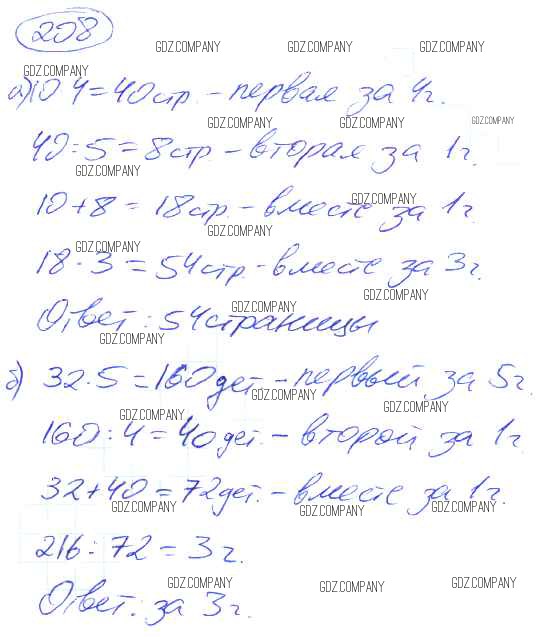 208
GDZ.COMPANY GDZ.COMPANY GDZ.COMPANY
GDZ.COMPANY
а) 10 4 = 40 стр. - первая за 4 г.
GDZ.COMPANY GDZ.COMPANY GDZ.COMPANY
40 : 5 = 8 стр - вторая за 1 г.
GDZ.COMPANY
GDZ.COMPANY
10 + 8 = 18 стр. - вместе за 1 г.
GDZ.COMPANY
GDZ.COMPANY
18 · 3 = 54 стр. - вместе за 3 г.
GDZ.COMPANY
GDZ.COMPANY
Ответ : 54 страницы
GDZ.COMPANY
б) 32 · 5 = 160 дет. - первый за 5 г.
GDZ.COMPANY
GDZ.COMPANY GDZ.COMPANY
160 : 4 = 40 дет. - второй за 1 г.
32 + 40 = 72 дет. - вместе за 1 г.
GDZ.COMPANY GDZ.COMPANY GDZ.COMPANY
216 : 72 = 3 г.
GDZ.COMPANY GDZ.COMPANY GDZ.COMPANY
Ответ: за 3 г.